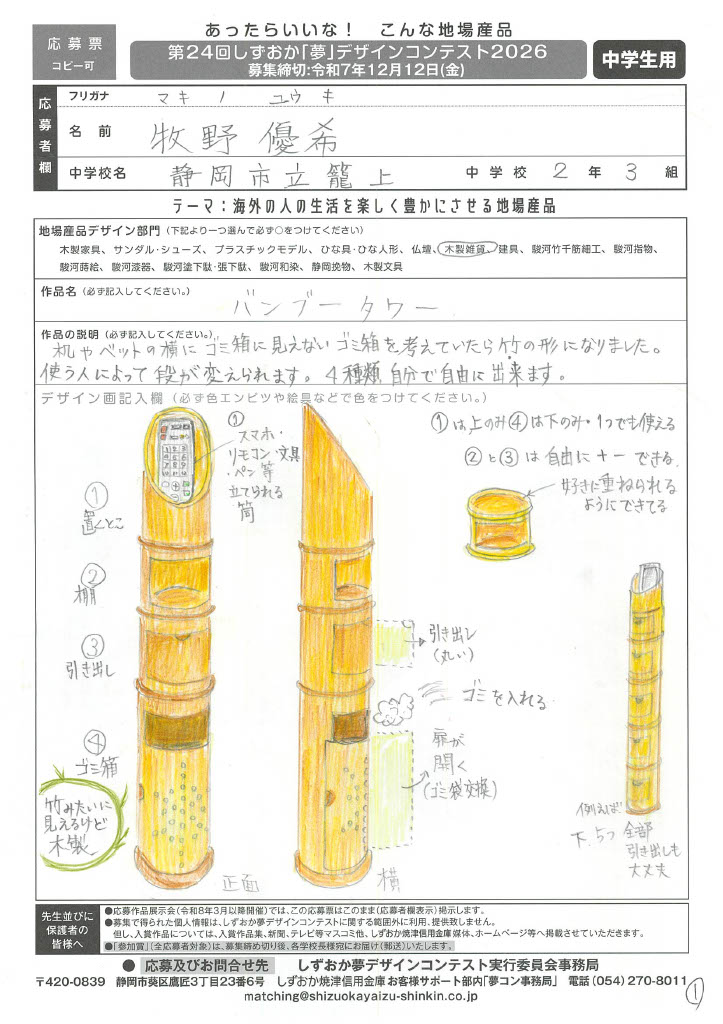 応募票
コピー可
あったらいいな！ こんな地場産品
第24回しずおか「夢」デザインコンテスト2026
募集締切:令和7年12月12日(金)
中学生用
応募者欄
フリガナ マキノ ユウキ
名前 牧野優希
中学校名 静岡市立籠上 中学校 2年3組
テーマ：海外の人の生活を楽しく豊かにさせる地場産品
地場産品デザイン部門（下記より一つ選んで必ず○をつけてください）
木製家具、サンダル・シューズ、プラスチックモデル、ひな具・ひな人形、仏壇、木製雑貨、建具、駿河竹千筋細工、駿河指物、
駿河蒔絵、駿河漆器、駿河塗下駄・張下駄、駿河和染、静岡挽物、木製文具
作品名（必ず記入してください。）
バンブータワー
作品の説明（必ず記入してください。）
机やベットの横にゴミ箱に見えないゴミ箱を考えていたら竹の形になりました。
使う人によって段が変えられます。4種類、自分で自由に出来ます。
デザイン画記入欄（必ず色エンピツや絵具などで色をつけてください。）
①は上のみ④は下のみ・1つでも使える
②と③は自由に＋－できる
好きに重ねられる
ようにできてる
・スマホ・
リモコン・文具
・ペン等
立てられる
筒
①
置くとこ
②
棚
③
引き出し
④
ゴミ箱
竹みたいに
見えるけど
木製
引き出し
(丸い)
ゴミを入れる
扉が
開く
(ゴミ袋交換)
正面
横
例えば
下、5つ全部
引き出しも
大丈夫
先生並びに
保護者の
皆様へ
●応募作品展示会（令和8年3月以降開催）では、この応募票はこのまま（応募者欄表示）掲示します。
●募集で得られた個人情報は、しずおか夢デザインコンテストに関する範囲外に利用、提供致しません。
但し、入賞作品については、入賞作品集、新聞、テレビ等マスコミ他、しずおか焼津信用金庫媒体、ホームページ等へ掲載させていただきます。
●「参加賞」（全応募者対象）は、募集締め切り後、各学校長様宛にお届け（郵送）いたします。
● 応募及びお問合せ先 しずおか夢デザインコンテスト実行委員会事務局
〒420-0839 静岡市葵区鷹匠3丁目23番6号 しずおか焼津信用金庫 お客様サポート部内「夢コン事務局」 電話(054)270-8011
matching@shizuokayaizu-shinkin.co.jp
①